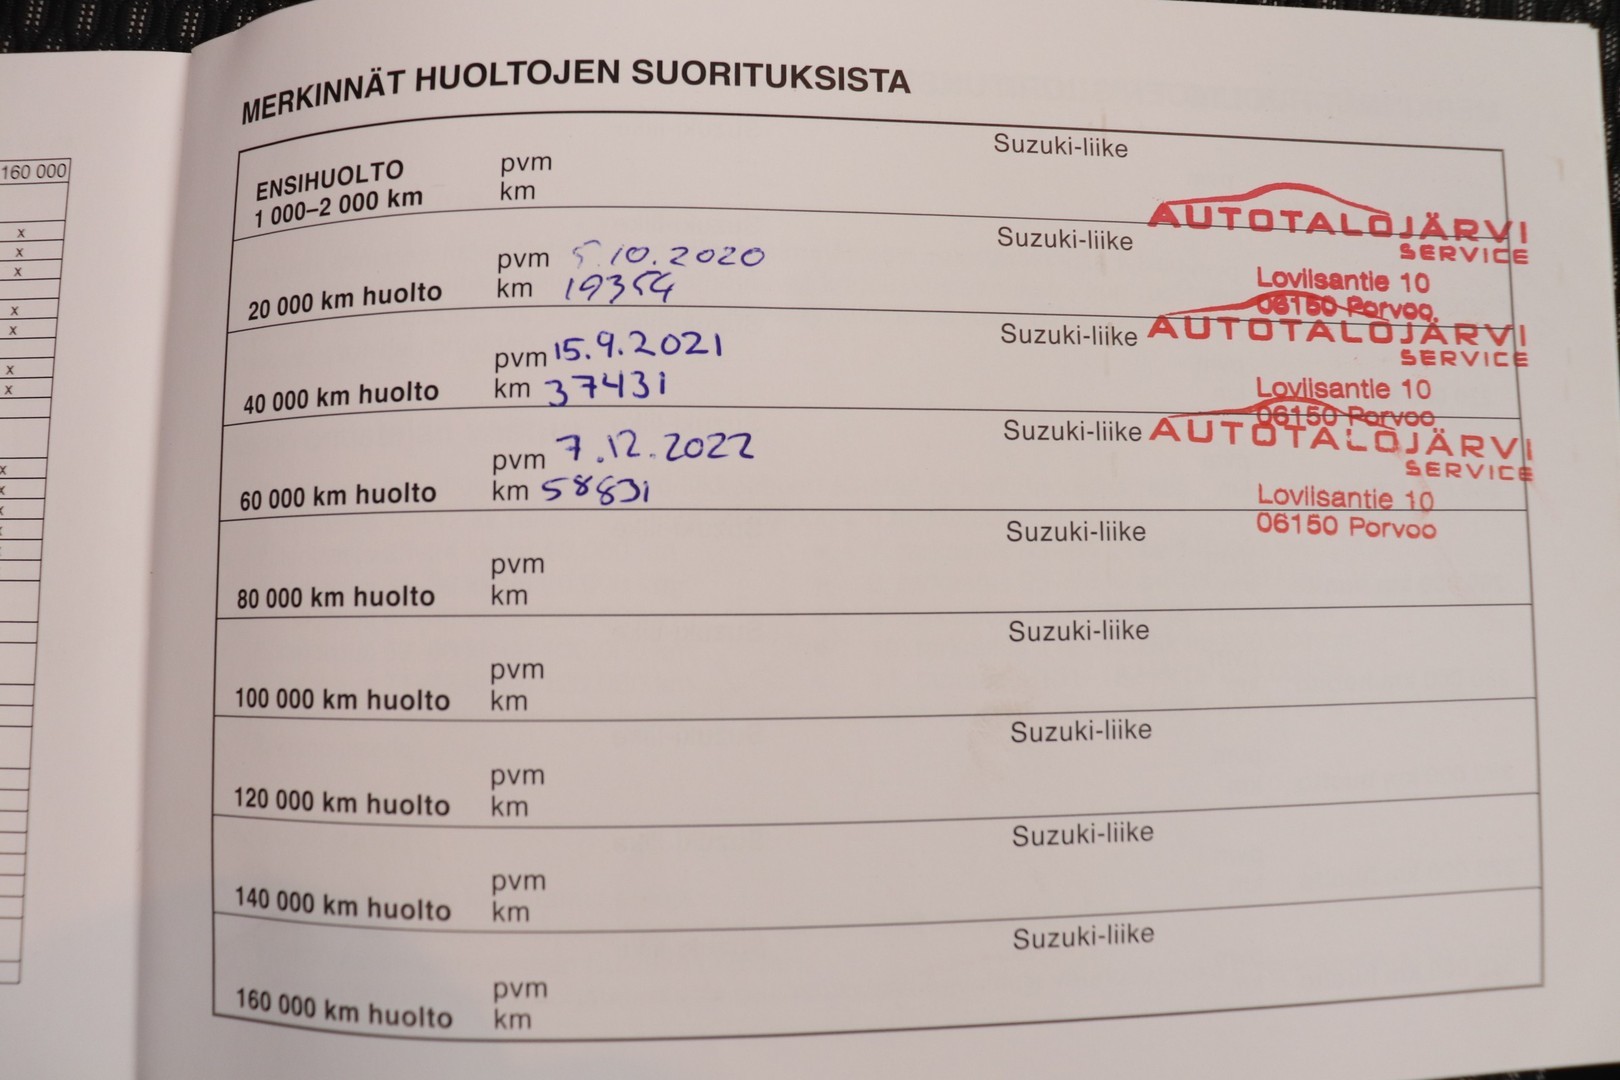 160 000
x
x
x
x
x
x
x
x
x
MERKINNÄT HUOLTOJEN SUORITUKSISTA
ENSIHUOLTO
1 000–2 000 km
pvm
km
Suzuki-liike
20 000 km huolto
pvm 5.10.2020
km 19354
Suzuki-liike
AUTOTALOJÄRVI
SERVICE
Loviisantie 10
06150 Porvoo
40 000 km huolto
pvm 15.9.2021
km 37431
Suzuki-liike
AUTOTALOJÄRVI
SERVICE
Loviisantie 10
06150 Porvoo
60 000 km huolto
pvm 7.12.2022
km 58831
Suzuki-liike
AUTOTALOJÄRVI
SERVICE
Loviisantie 10
06150 Porvoo
80 000 km huolto
pvm
km
Suzuki-liike
100 000 km huolto
pvm
km
Suzuki-liike
120 000 km huolto
pvm
km
Suzuki-liike
140 000 km huolto
pvm
km
Suzuki-liike
160 000 km huolto
pvm
km
Suzuki-liike